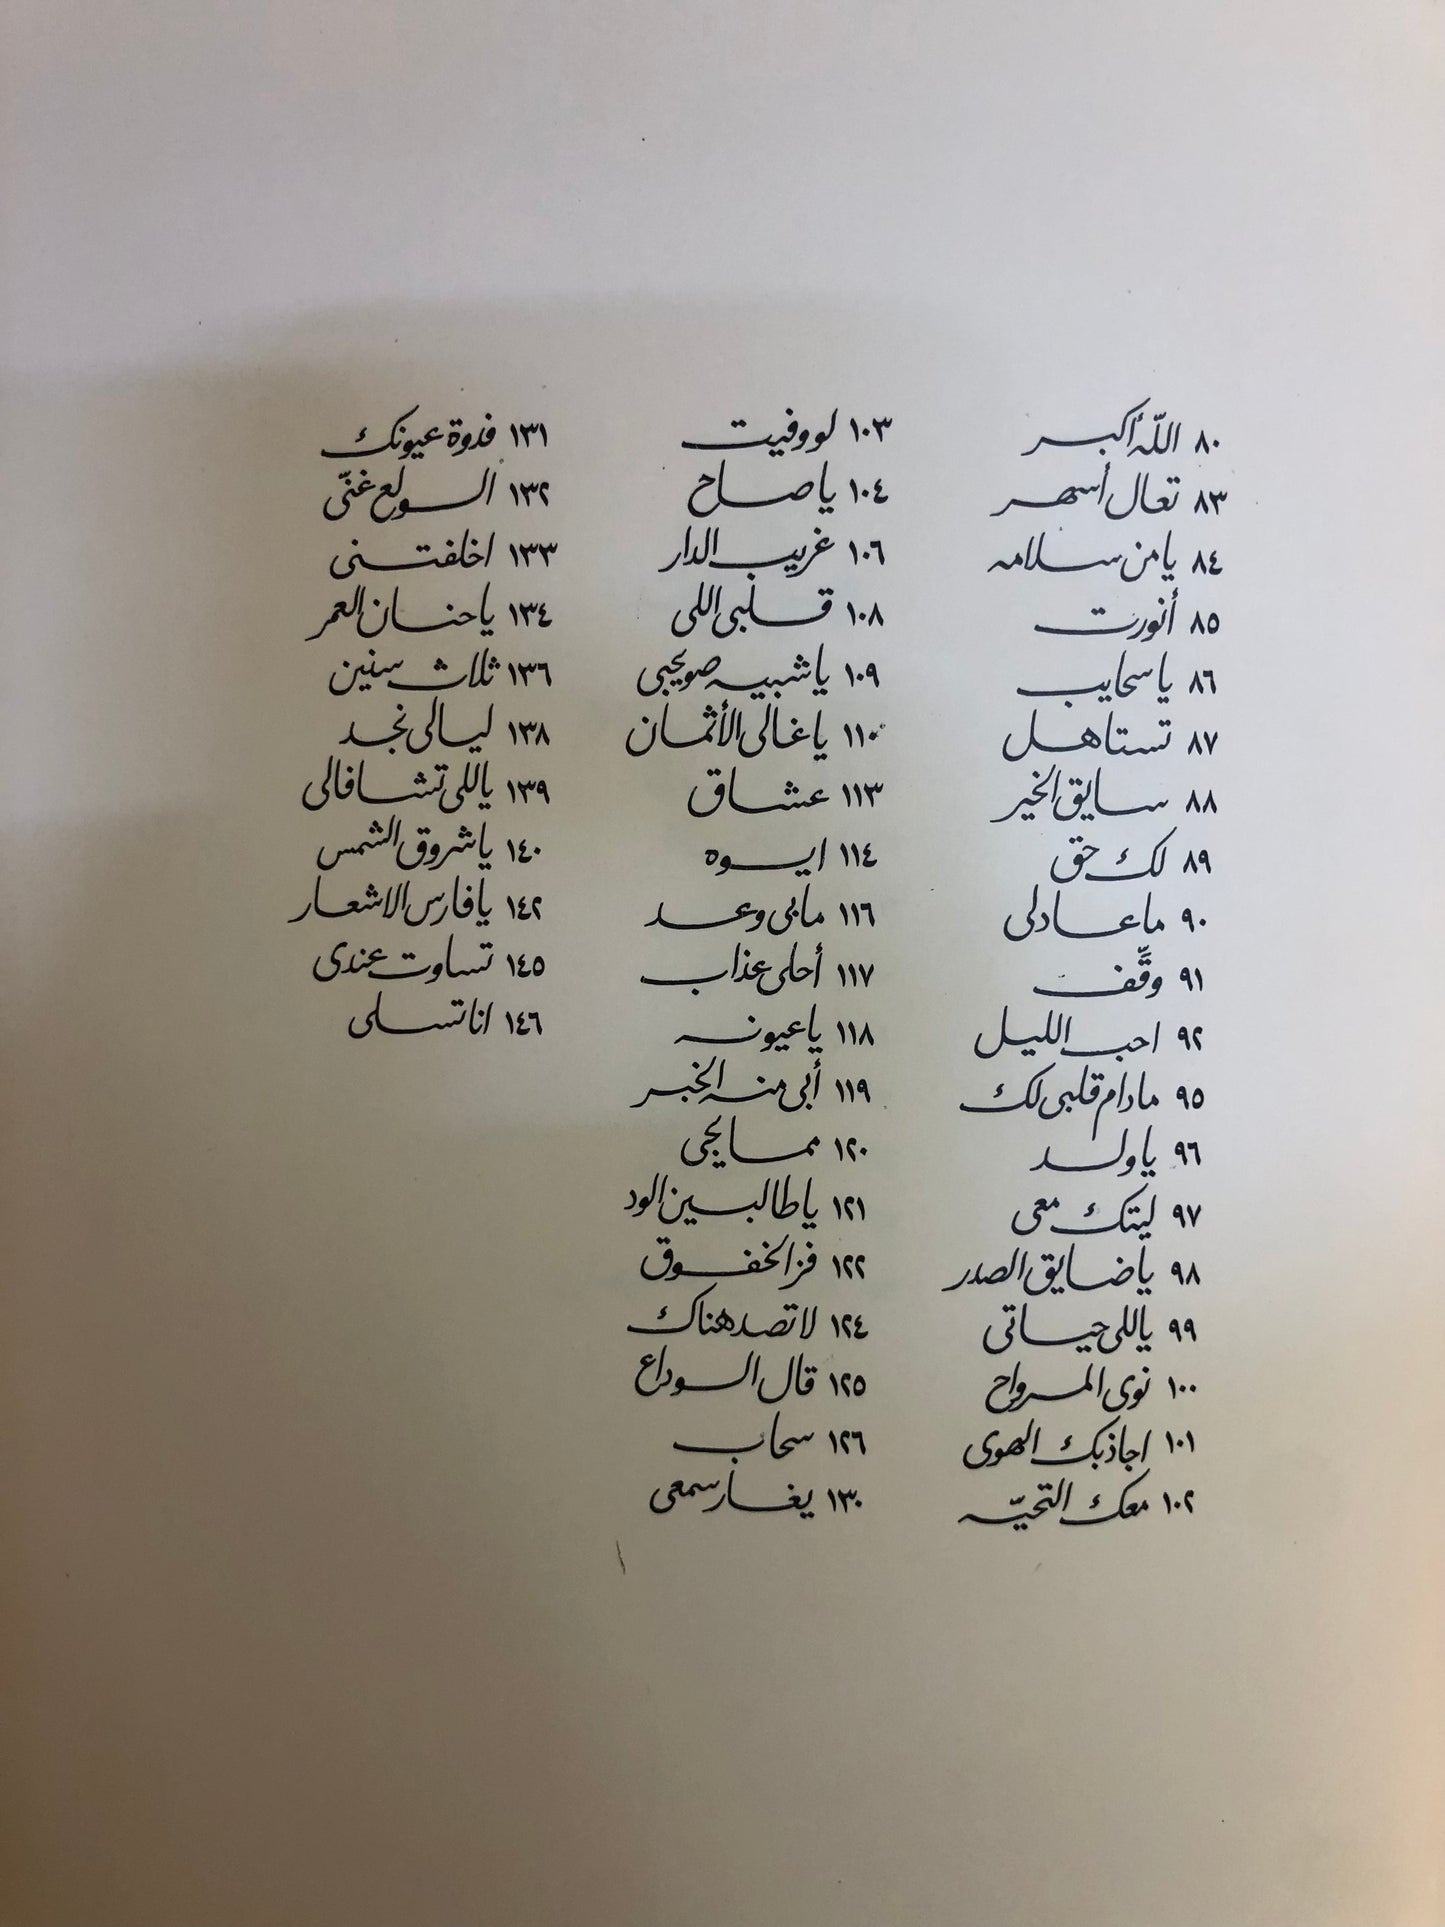 ٨٠ اللّه أكبر
٨٣ تعال أسهر
٨٤ يا من سلامه
٨٥ أنورت
٨٦ يا سحايب
٨٧ تستاهل
٨٨ سايق الخير
٨٩ لك حق
٩٠ ما عاد لى
٩١ وقِّف
٩٢ احب الليل
٩٥ مادام قلبى لك
٩٦ يا ولد
٩٧ ليتك معى
٩٨ يا ضايق الصدر
٩٩ ياللى حياتى
١٠٠ نوى المرواح
١٠١ اجاذبك الهوى
١٠٢ معك التحيّه
١٠٣ لو وفيت
١٠٤ يا صاح
١٠٦ غريب الدار
١٠٨ قلبى اللى
١٠٩ يا شبيه صويحبى
١١٠ يا غالى الأثمان
١١٣ عشاق
١١٤ ايوه
١١٦ مابى وعد
١١٧ أحلى عذاب
١١٨ يا عيونه
١١٩ أبى منه الخبر
١٢٠ ممايحى
١٢١ يا طالبين الود
١٢٢ فز الخفوق
١٢٤ لا تصد هناك
١٢٥ قال الوداع
١٢٦ سحاب
١٣٠ يغار سمعى
١٣١ فدوة عيونك
١٣٢ الولع غنّى
١٣٣ اخلفتنى
١٣٤ يا حنان العمر
١٣٦ ثلاث سنين
١٣٨ ليالى نجد
١٣٩ ياللى تشافالى
١٤٠ يا شروق الشمس
١٤٢ يا فارس الاشعار
١٤٥ تساوت عندى
١٤٦ انا تسلى